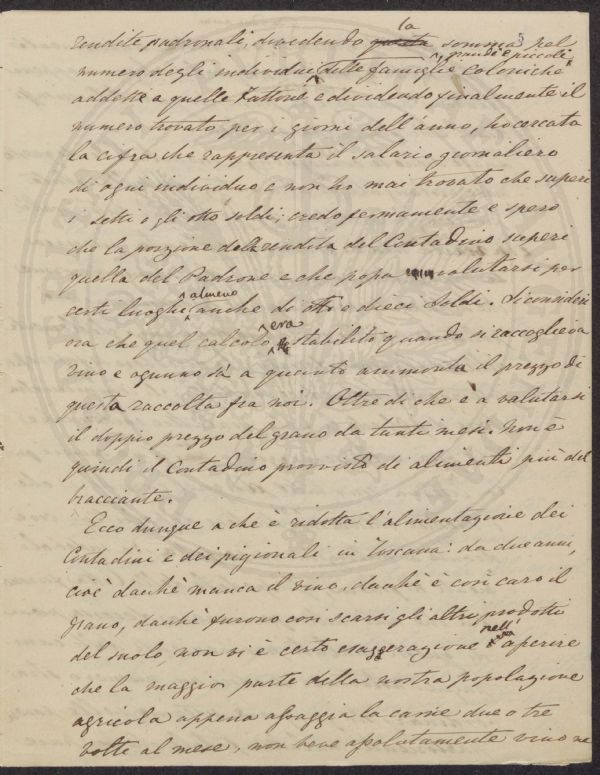 la
rendite padronali, dividendo questa somma pel
numero degli individui delle famiglie coloniche grandi e piccoli
addette a quelle Fattorie e dividendo finalmente il
numero trovato per i giorni dell'anno, ho cercata
la cifra che rappresenta il salario giornaliero
di ogni individuo e non ho mai trovato che superi
i setti o gli otto soldi; credo fermamente e spero
che la porzione della rendita del Contadino superi
quella del Padrone e che possa valutarsi per
certi luoghi almeno anche di otto o dieci Soldi. Si consideri
ora che quel calcolo era stabilito quando si raccoglieva
vino e ognuno sà a quanto ammonta il prezzo di
questa raccolta fra noi. Oltre di che è a valutarsi
il doppio prezzo del grano da tanti mesi. Non è
quindi il Contadino provvisto di alimenti più del
bracciante.
Ecco dunque a che è ridotta l'alimentazione dei
Contadini e dei pigionali in Toscana: da due anni,
cioè dacchè manca il vino, dacchè è così caro il
grano, dacchè furono così scarsi gli altri prodotti
del suolo, non vi è certo esaggerazione nell' asserire
che la maggior parte della nostra popolazione
agricola appena assaggia la carne due o tre
volte al mese, non beve assolutamente vino ne